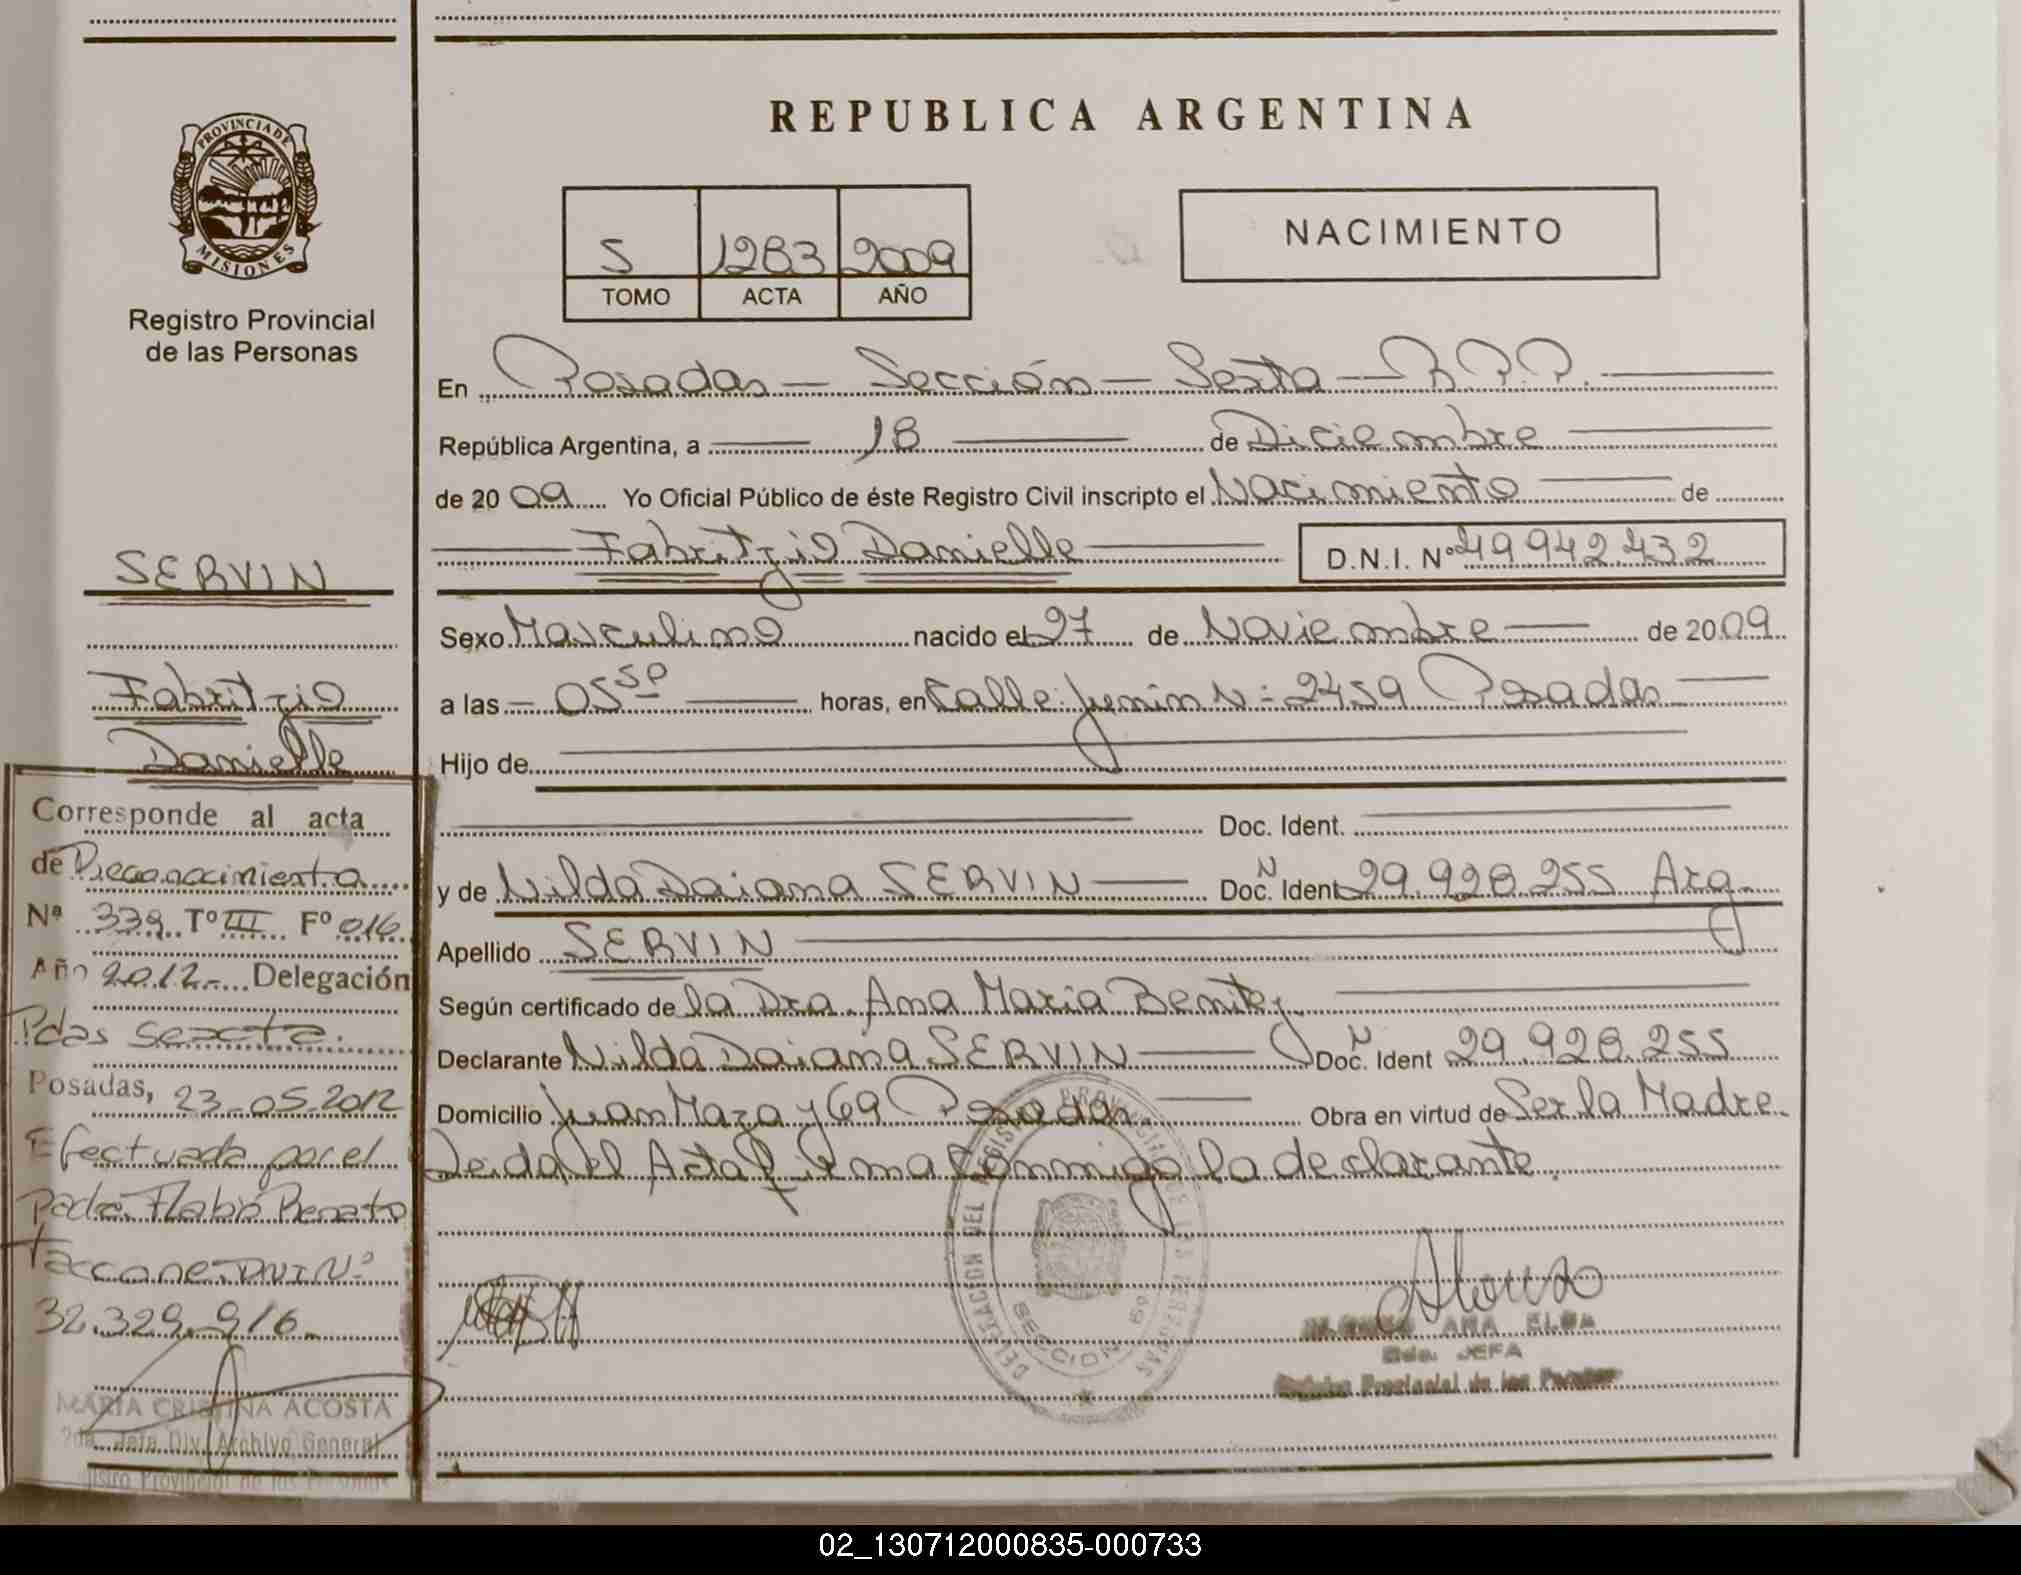 REPUBLICA ARGENTINA
PROVINCIA DE MISIONES
Registro Provincial
de las Personas
5 1283 2009
TOMO ACTA AÑO
NACIMIENTO
En Posadas - Sección - Sexta - R.P.P.
República Argentina, a 18 de Diciembre
de 2009 Yo Oficial Público de éste Registro Civil inscripto el Nacimiento de
Fabritzio Danielle D.N.I. Nº 49942.432
Sexo Masculino nacido el 27 de Noviembre de 2009
a las 05 50 horas, en Calle Junín N: 2459 Posadas
Hijo de
Doc. Ident.
y de Nilda Daiana SERVIN Doc. Ident N 29.928.255 Arg.
Apellido SERVIN
Según certificado de la Dra. Ana Maria Benitez
Declarante Nilda Daiana SERVIN Doc. Ident N 29.928.255
Domicilio Juan Maza y 69 Posadas Obra en virtud de Ser la Madre
Leida el Acta Firma Conmigo la declarante.
DELEGACION DEL REGISTRO PROVINCIAL DE LAS PERSONAS
SECCION 6º
ANA ELBA
JEFA
Registro Provincial de las Personas
SERVIN
Fabritzio
Danielle
Corresponde al acta
de Reconocimiento
Nª 339 Tº III Fº 016
Año 2012.- Delegación
Pdas Sexcta.
Posadas, 23-05-2012
Efectuada por el
Padre Flabio Renato
Taccone-DNI Nº
32.329.916.
MARIA CRISTINA ACOSTA
2da. Jefa Div. Archivo General
Registro Provincial de las Personas
02_130712000835-000733